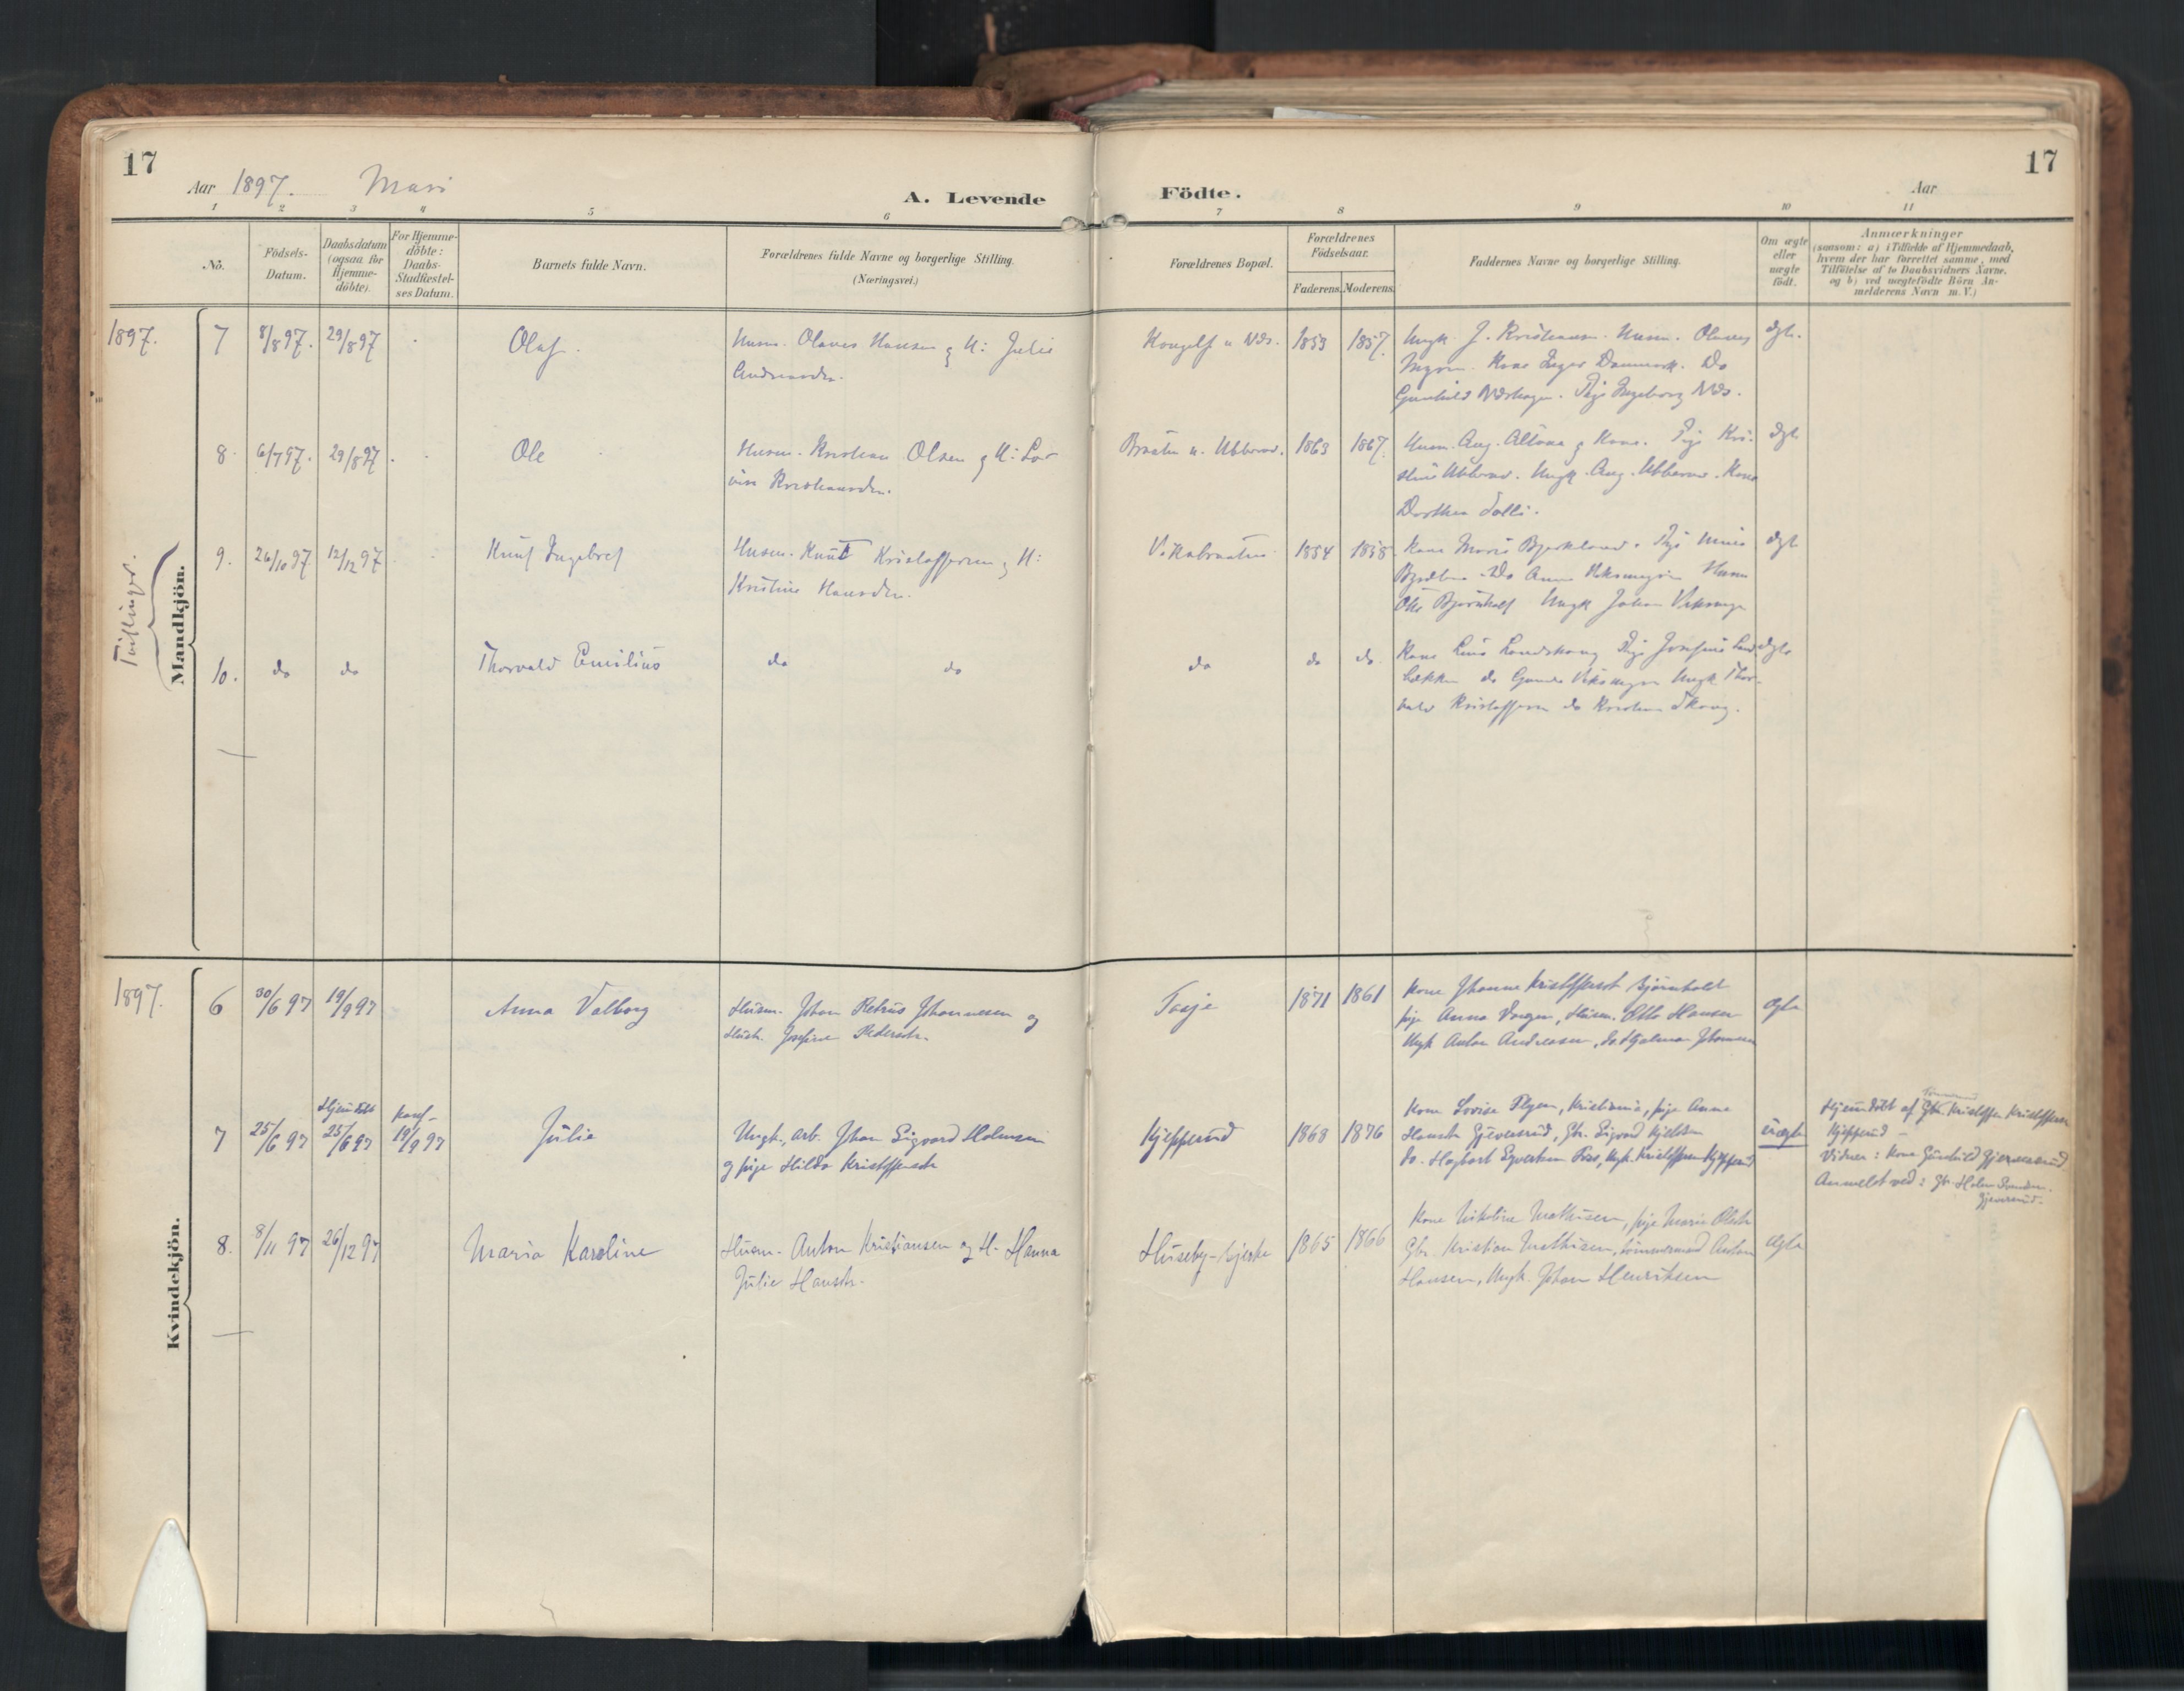 17
17
Aar 1897. Mari
A. Levende Födte.
Aar
1 2 3 4 5 6 7 8 9 10 11
No.
Födsels-Datum.
Daabsdatum (ogsaa for Hjemme-döbte).
For Hjemme-döbte: Daabs-Stadfæstel-ses Datum.
Barnets fulde Navn.
Forældrenes fulde Navne og borgerlige Stilling.
(Næringsvei.)
Forældrenes Bopæl.
Forældrenes Födselsaar.
Faderens. Moderens.
Faddernes Navne og borgerlige Stilling.
Om ægte eller uægte födt.
Anmærkninger
(saasom: a) i Tilfælde af Hjemmedaab,
hvem der har forrettet samme, med
Tilföielse af to Daabsvidners Navne,
og b) ved uægtefödte Börn An-
melderens Navn m. V.)
Mandkjön.
1897. 7 8/8 97. 29/8 97 Olaf. Husm. Olaves Hansen og H: Julie
Andreasdr. 1853 1857. Ungk. J. Kristiansen. Husm. Olaves
Kone Inger Danmark. Do
Gunhild Pige Ingeborg ægte.
8 6/7 97. 29/8 97 Ole Husm. Kristian Olsen og H: Lo-
vise Kristiansdr. Braaten u. Ubberud. 1863 1867. Husm. Aug. Altona og Kone. Pige Kri-
stine Ubberud. Ungk. Aug. Ubberud. Kone
Dorthea ægte
9. 26/10 97 12/12 97 Knut Ingebret Husm. Knut Kristoffersen og H:
Kristine Hansdr. 1854 1858 Kone Marie
Do Anna Husm
Otto Bjørnholt Ungk Johan ægte
Tvillinger.
10. do do Thorvald Emilius do do do do do. Kone Lina Landskaug Pige Josefine
bækken do Ungk Thor-
vald Kristoffersen do Kristian Skaug. ægte
Kvindekjön.
1897. 6 30/6 97 19/9 97 Anna Valborg Husm. Johan Petrus Johannesen og
Hustr. Josefine Pedersdtr. Tasje 1871 1861 Kone Johanne Kristoffersdt Bjørnholdt
pige Anna Husm. Otto Hansen
Ungk Anton Andreasen, do. Hjalmar Johannesen ægte
7 25/6 97 Hjemdöbt 25/6 97 Konf- 19/9 97 Julie Ungk., arb. Johan Sigvard Holmsen
og pige Hilda Kristoffersdtr Kjepperud 1868 1876 Kone Lovise Kristiania, pige Anna
Hansdtr Gjeversrud, Gbr. Sigvard Kjeldsen
do. Hagbart Syvertsen Ungk. Kristoffersen Kjepperud uægte
Hjemdöbt af Gbr. Kristoffer Kristoffersen
Kjepperud -
Vidner: Kone Gunhild Gjeversrud
Anmeldt ved: Gbr.
Gjeversrud.
8. 8/11 97 26/12 97 Maria Karoline Husm. Anton Kristiansen og H. Hanna
Julie Hansdtr. Huseby-bjerke 1865 1866 Kone Nikoline Mathisen, pige Marie Olsdtr
Gbr. Kristian Mathisen, tömmermand Anton
Hansen, Ungk. Johan Henriksen ægte